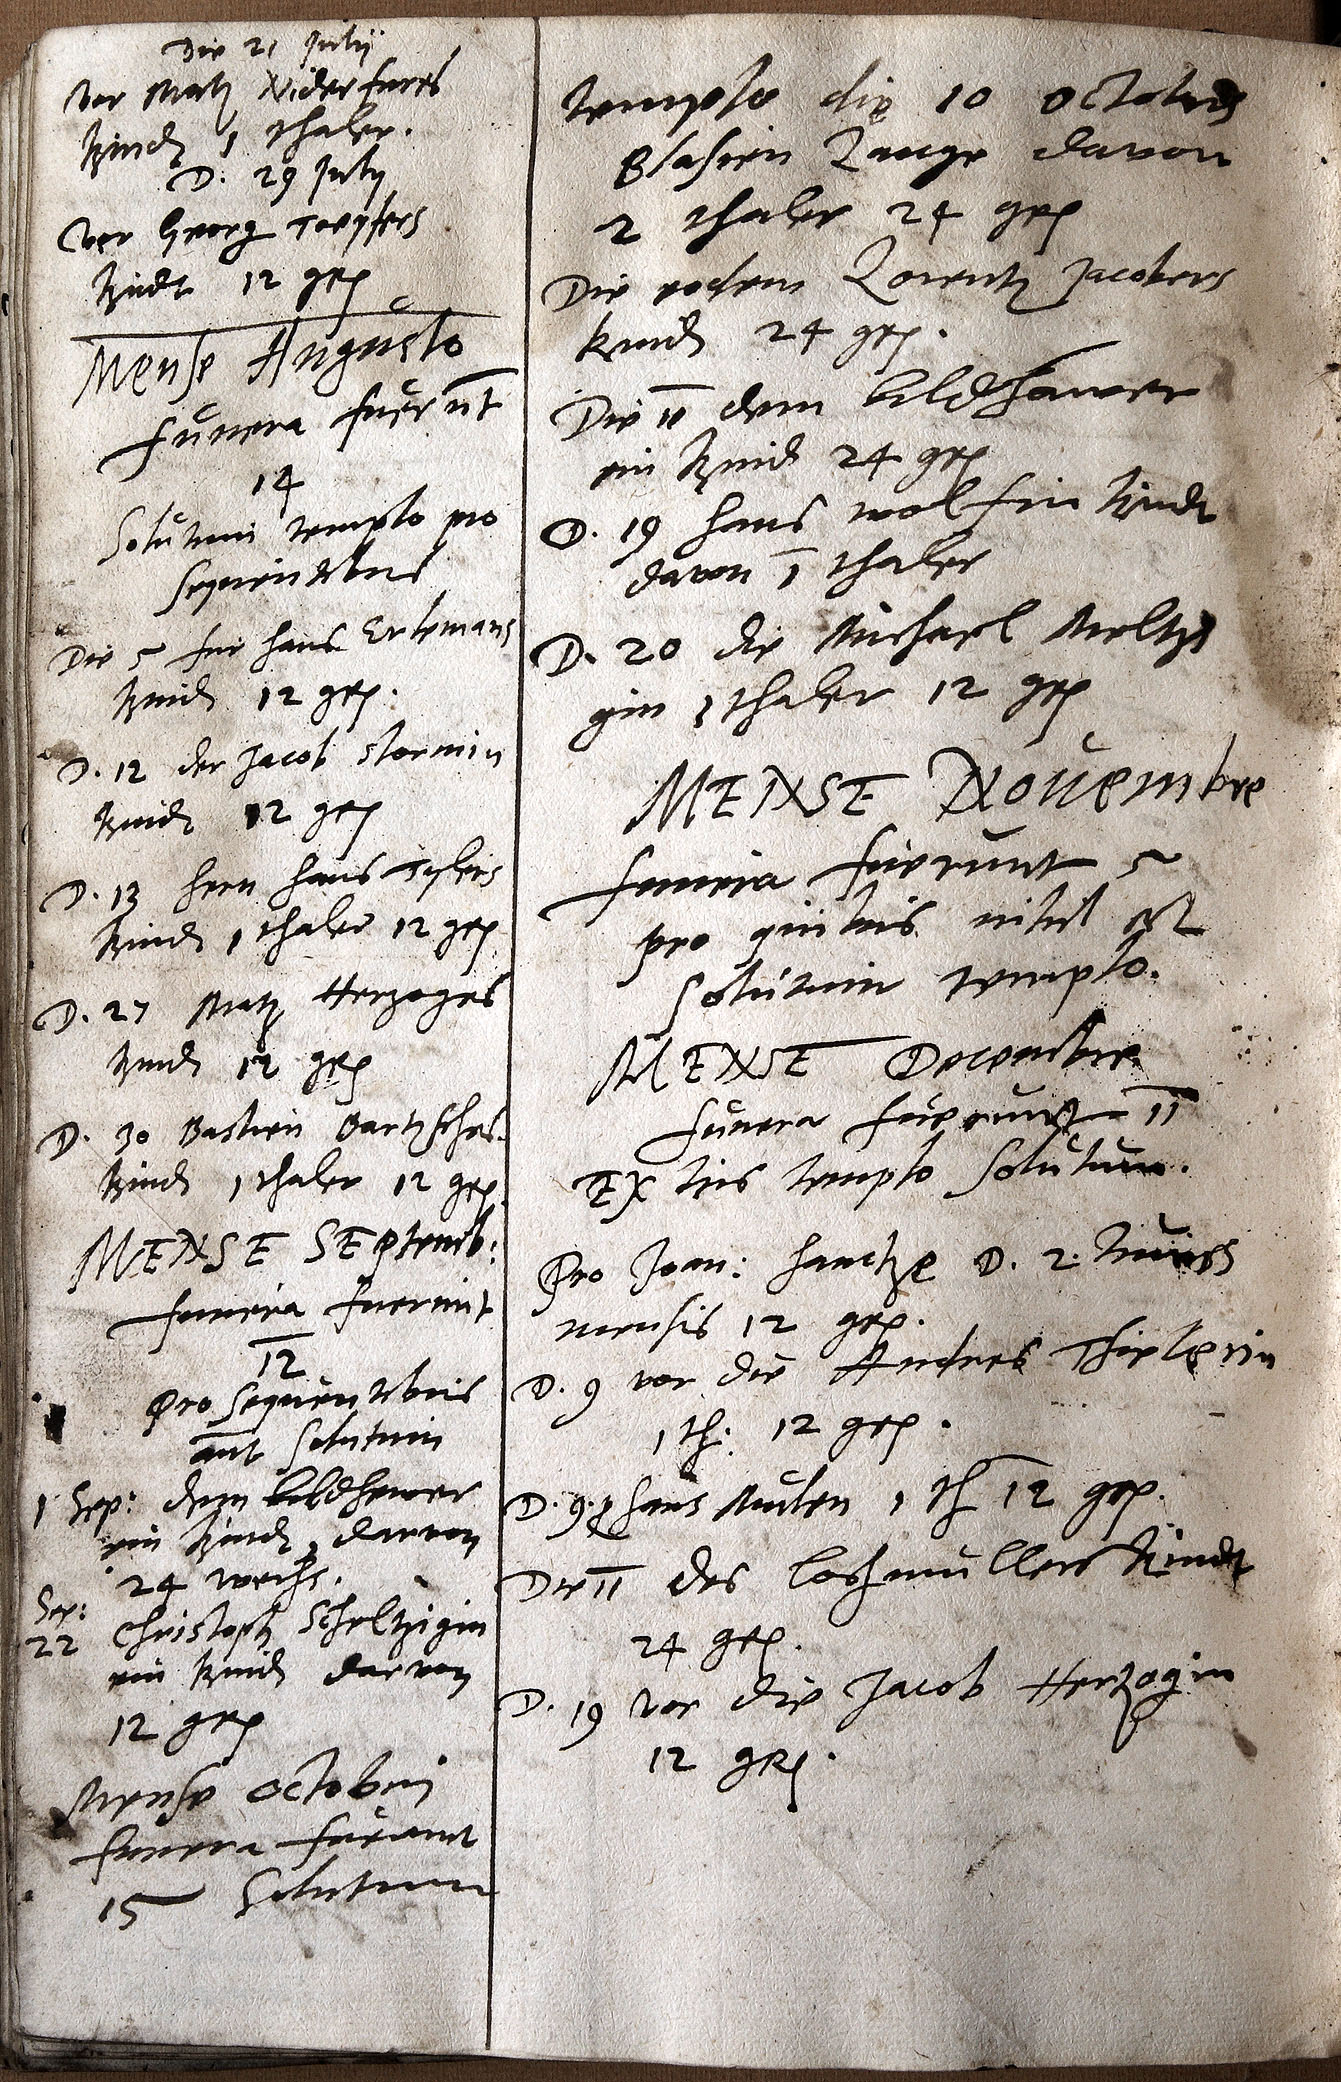 Die 21 Julij
Vor Matz Niderfures
Kindt 1 thaler.
D. 29 July
Vor Georg Toepfers
Kindt 12 grs
Mense Augusto
funera fuerūt
14
Solutum templo pro
sequentibus
Die 5 fur hans Erlemans
Kindt 12 grs.
D. 12 der Jacob Stormin
Kindt 12 grs
D. 13 hern hans
Kindt 1 thaler 12 grs
D. 27 Matz Herzoges
Kindt 12 grs
D. 30 Bastien Bartzsches
Kindt 1 thaler 12 grs.
MENSE SEptemb:
funera fuerunt
12
Pro sequentibus
aut Solutum
1 Sep: dem bildhewer
ein Kindt darvon
24
Sep:
22 Christoph Scholtzigin
ein Kindt darvon
12 grs
Mense Octobri
funera fuerunt
15 Solutum
templo die 10 Octobris
Blasien Lange davon
2 thaler 24 grs
Die eodem Lorentz Jacobers
kindt 24 grs.
Die 11 dem bildhawer
ein Kindt 24 grs
D. 19 hans wolfin Kindt
davon 1 thaler
D. 20 die Michael
gin 1 thaler 12 grs
MENSE Nouembre
funera fuerunt 5
pro quibus nihil est
Solutum templo.
MENSE Decembre
funera fuerunt 11
EX his templo Solutum.
Pro Joan: D. 2. huius
mensis 12 grs.
D. 9 vor die Andres
1 th: 12 grs.
D. 9. hans 1 th 12 grs.
Die 11 des Kindt
24 grs.
D. 19 Vor die Jacob Hertzogin
12 grs.